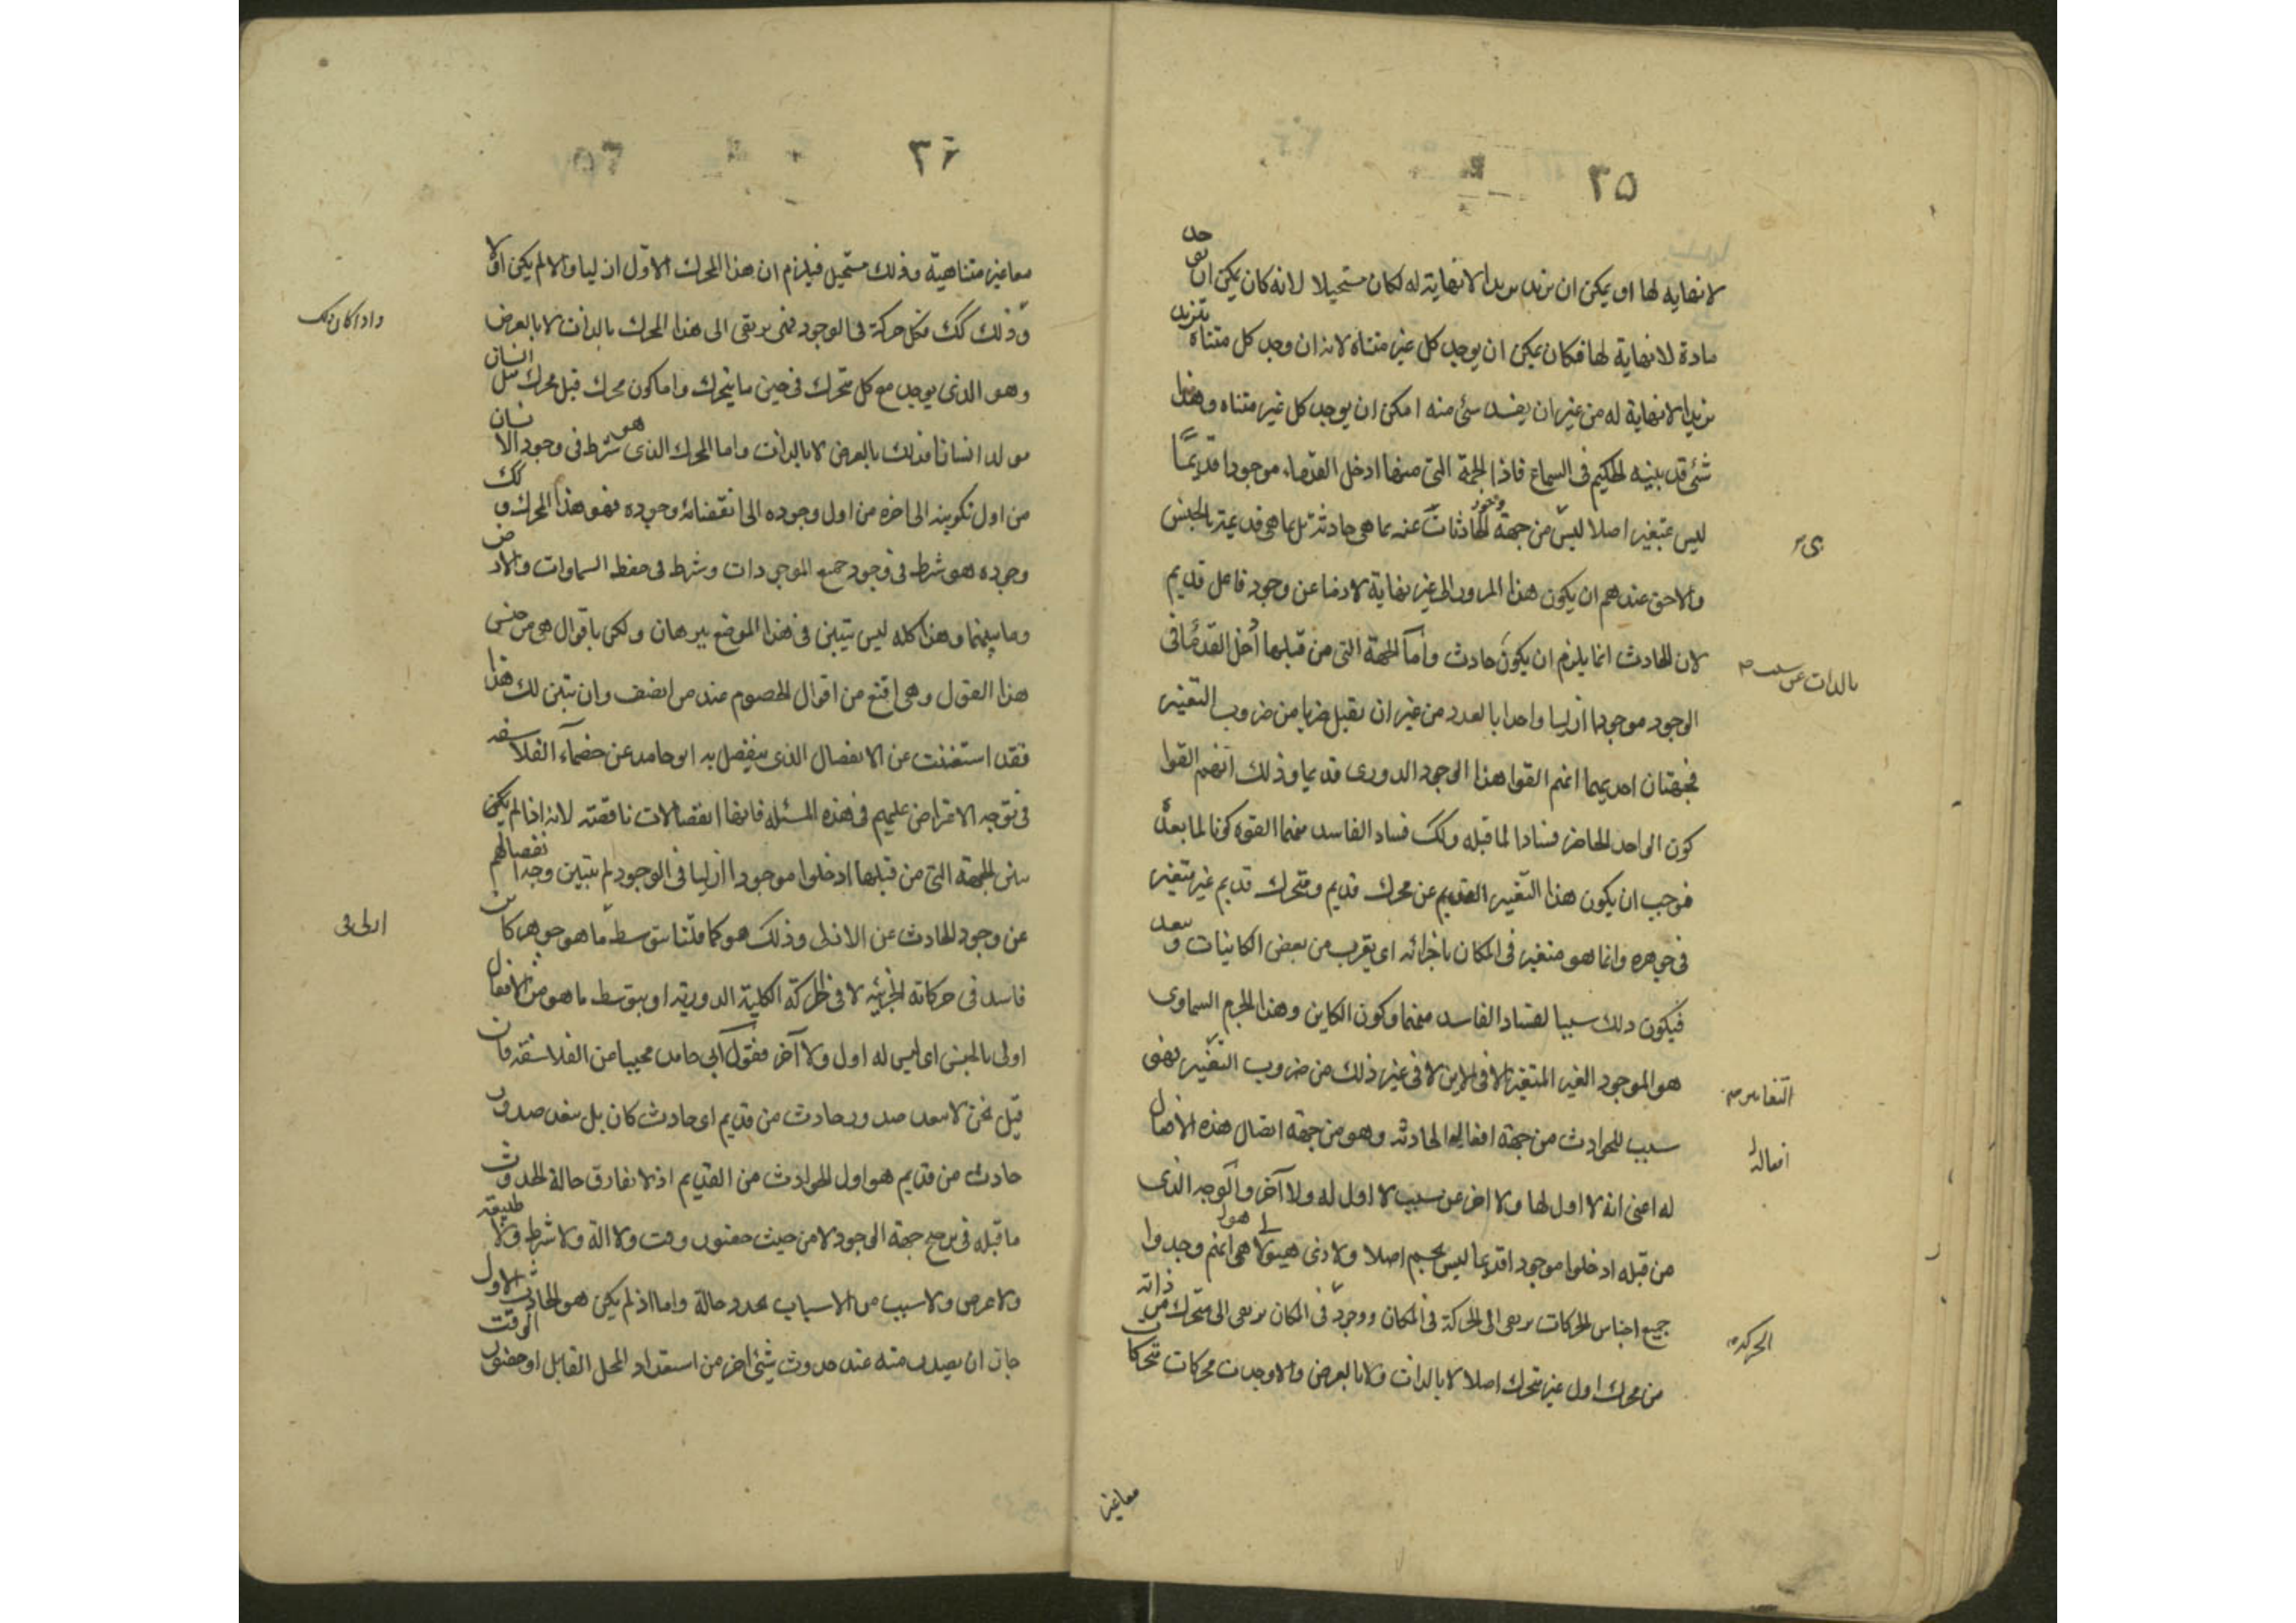 ٣٥
لا نهاية لها او يمكن ان تزيد تزيدا لا نهاية له لكان مستحيلا لانه كان يمكن ان يوجد
مادة لا نهاية لها فكان يمكن ان يوجد كل غير متناه لانه ان وجد كل متناه تزيد
تزيدا لا نهاية له من غير ان يفسد شئ منه امكن ان يوجد كل غير متناه وهذا
شئ قد بينه الحكيم فى السماع فاذا الجهة التى منها ادخل القدماء موجودا قديما
ليس بمتغير اصلا ليس من جهة وجود الحادثات عنه بما هى حادثة بل بما هى قديمة بالجنس
والاحق عندهم ان يكون هذا المرور الى غير نهاية لازما عن وجود فاعل قديم
لان الحادث انما يلزم ان يكون حادث واما الجهة التى من قبلها ادخل القدماء فى
بالذات عن سبب
الوجود موجودا ازليا واحدا بالعدد من غير ان يقبل ضربا من ضروب التغير
فجهتان احديهما انهم الفوا هذا الوجود الدورى قديما وذلك انهم الفوا
كون الواحد الحاضر فسادا لما قبله وكك فساد الفاسد منهما الفوه كونا لما بعده
فوجب ان يكون هذا التغيير القديم عن محرك قديم ومتحرك قديم غير متغير
فى جوهره وانما هو متغير فى المكان باجزائه اى يقرب من بعض الكاينات ويبعد
فيكون ذلك سببا لفساد الفاسد منهما وكون الكاين وهذا الجرم السماوى
هو الموجود الغير المتغير الا فى الاين لا فى غير ذلك من ضروب التغيير فهو
سبب للحوادث من جهة افعاله الحادثه وهو من جهة اتصال هذه الافعال
افعاله
له اعنى انه لا اول لها ولا اخر عن سبب لا اول له ولا آخر والوجه الذى
من قبله ادخلوا موجودا قديما ليس بجسم اصلا ولا ذى هيولا هو انهم وجدوا
جميع اجناس الحركات ترتقى الى الحركة فى المكان ووجود فى المكان ترتقى الى متحرك من ذاته
الحركة
من محرك اول غير متحرك اصلا لا بالذات ولا بالعرض والا وجدت محركات متحركات
معا غير
٣٦
معا غير متناهية وذلك مستحيل فيلزم ان هذا المحرك الاول ازليا والا لم يكن اولا
واذا كان ذلك
وذلك كك فكل حركة فى الوجود فهى ترتقى الى هذا المحرك بالذات لا بالعرض
وهو الذى يوجد مع كل متحرك فى حين ما يتحرك واما كون محرك قبل محرك مثل انسان
يولد انسانا فذلك بالعرض لا بالذات واما المحرك الذى هو شرط فى وجود الانسان
من اول تكوينه الى اخره من اول وجوده الى انقضاء وجوده فهو هذا المحرك وكك
وجوده هو شرط فى وجود جميع الموجودات وشرط فى حفظ السماوات والارض
وما بينهما وهذا كله ليس يتبين فى هذا الموضع ببرهان ولكن باقوال هى من جنس
هذا القول وهى اقنع من اقوال الخصوم عند من انصف وان تبين لك هذا
فقد استغنيت عن الانفصال الذى ينفصل به ابو حامد عن خصماء الفلاسفه
فى توجه الاعتراض عليهم فى هذه المسئله فانها انفصالات ناقصة لانه اذا لم يكن
تبين الجهة التى من قبلها ادخلوا موجودا ازليا فى الوجود لم يتبين وجه انفصالهم
عن وجود الحادث عن الازلى وذلك هو كما قلنا بتوسط ما هو جوهر كاين
فاسد فى حركاته الجزئيه لا فى الحركة الكلية الدورية او بتوسط ما هو من الافعال
اولى بالجنس اى ليس له اول ولا آخر فقول ابى حامد مجيبا عن الفلاسفة فان
قيل نحن لا نبعد صدور حادث من قديم اى حادث كان بل نبعد صدور
حادث من قديم هو اول الحوادث من القديم اذ لا يفارق حالة الحدوث
ما قبله فى ترجح جهة الوجود لا من حيث حضور وقت ولا الة ولا شرط ولا طبيعة
ولا عرض ولا سبب من الاسباب تجدد حالة واما اذا لم يكن هو الحادث الاول
جاز ان يصدر منه عند حدوث شئ اخر من استعداد المحل القابل او حضور الوقت